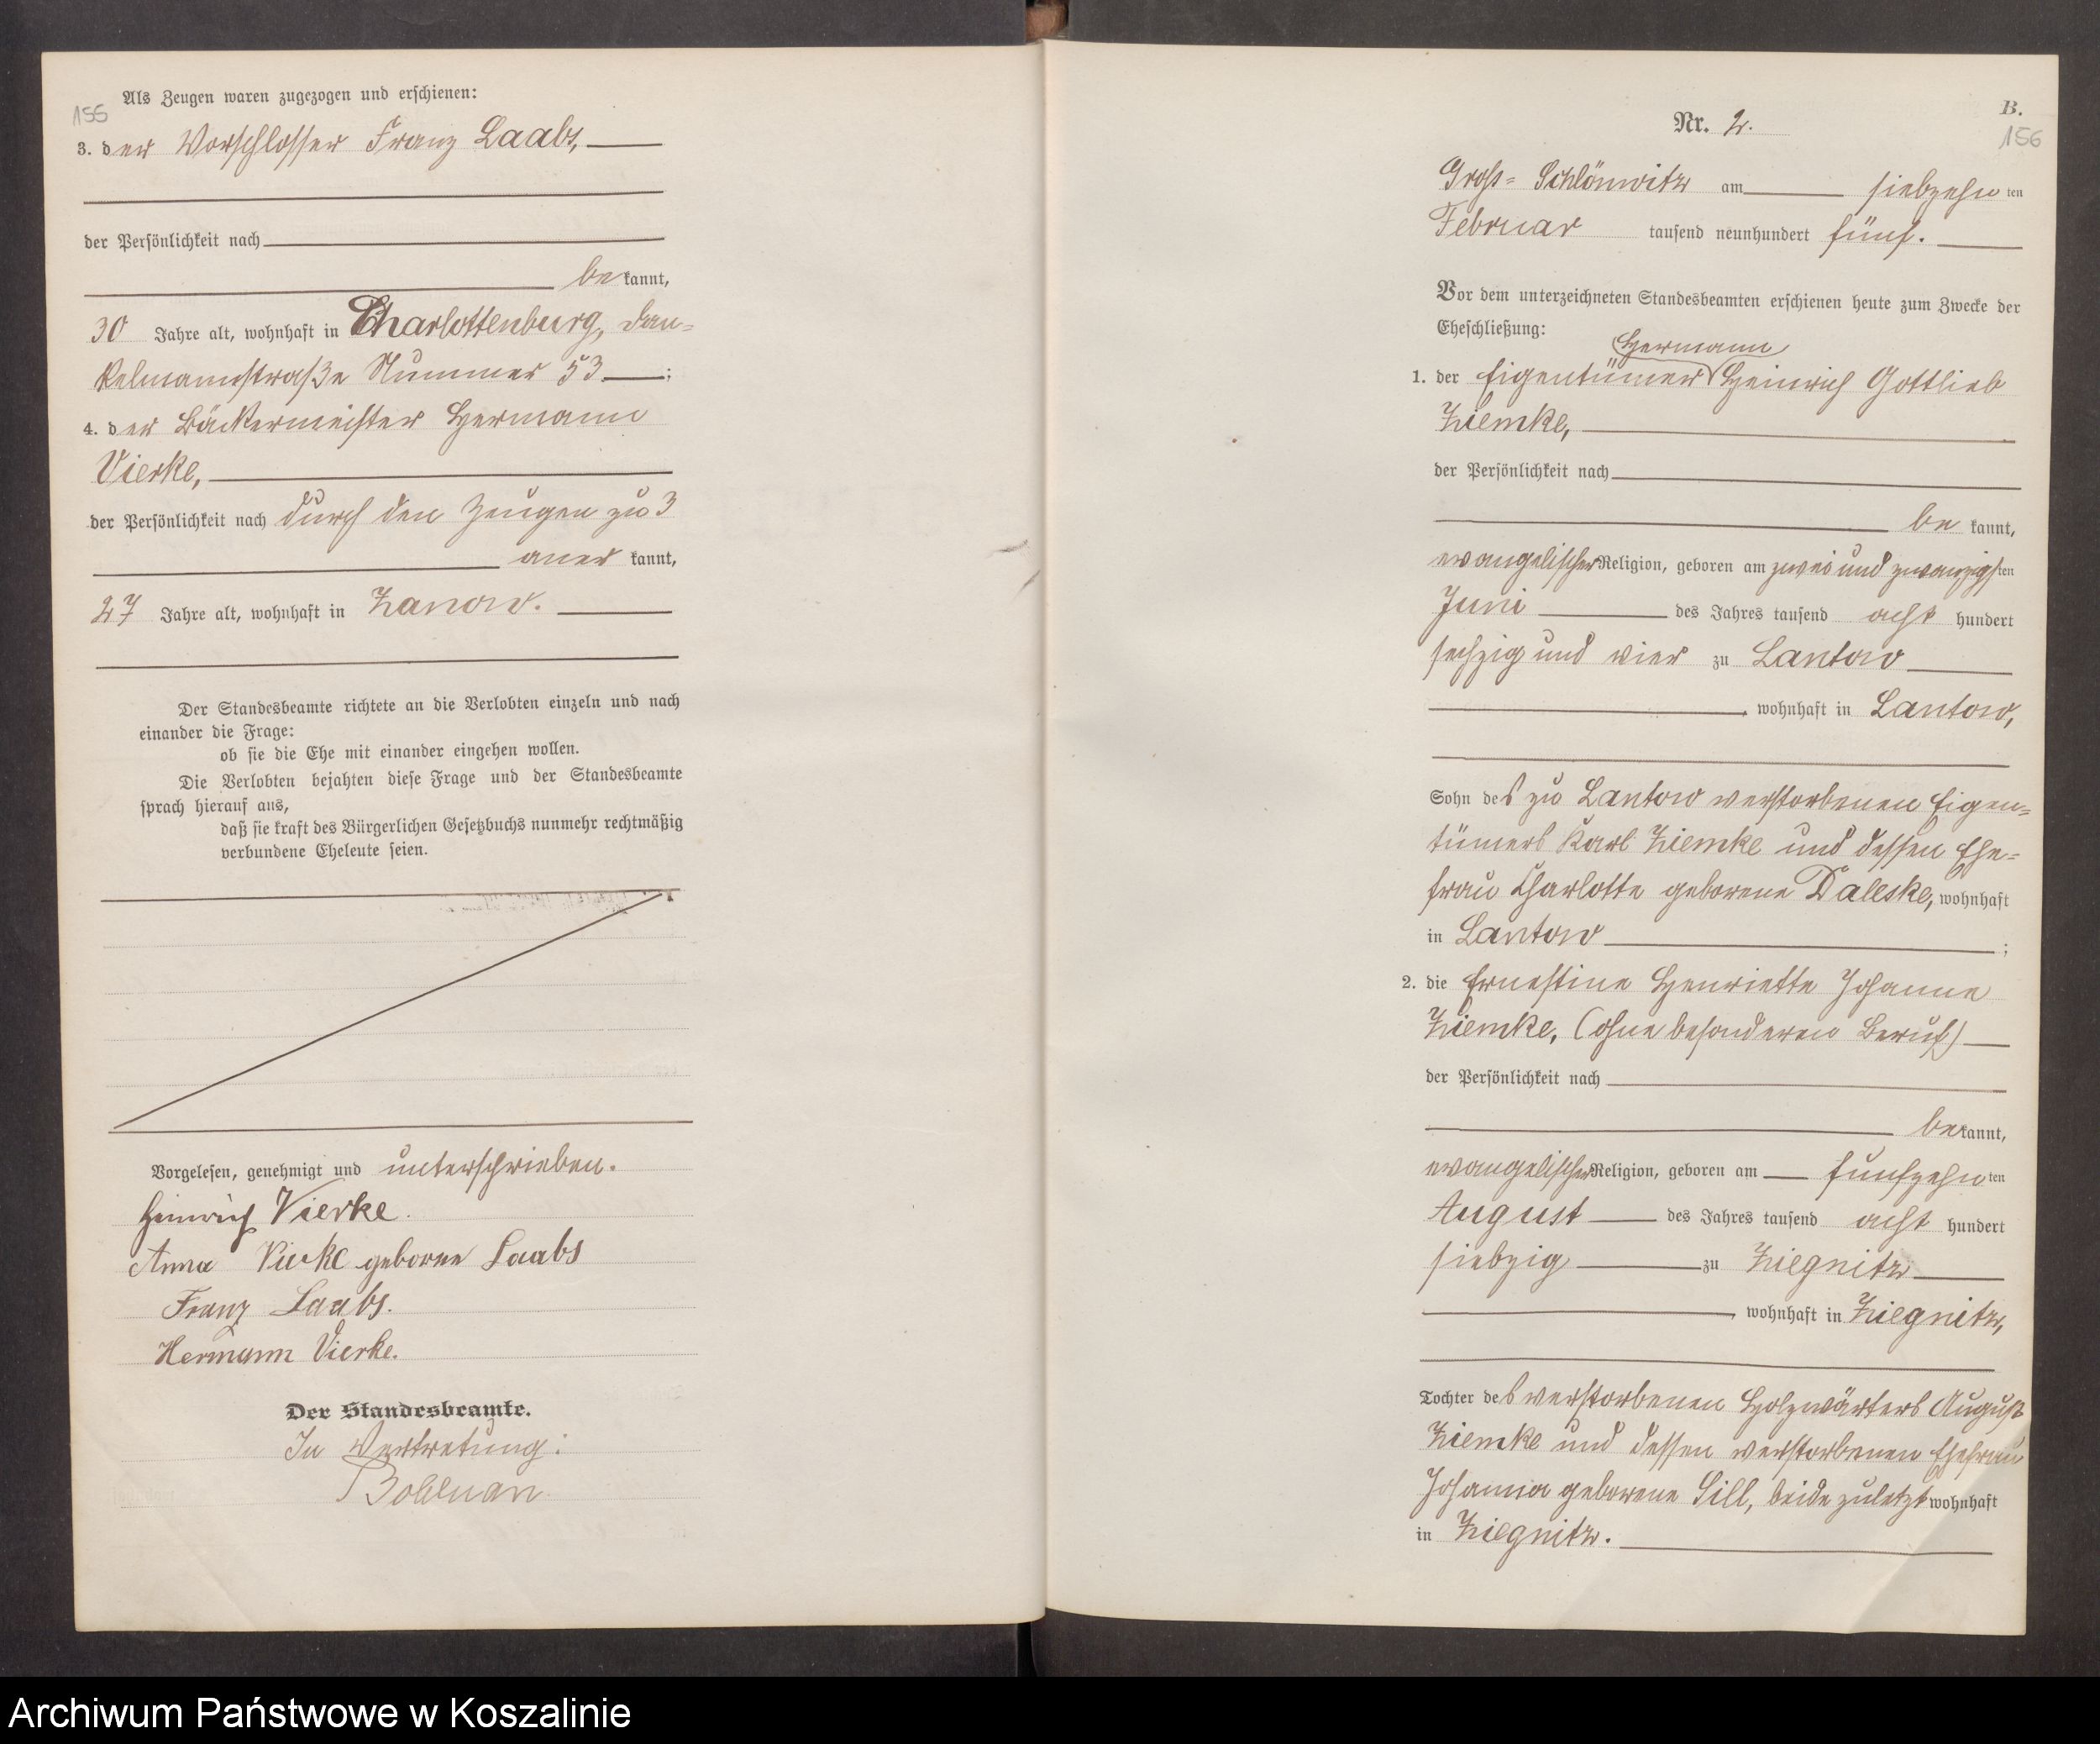 155
Als Zeugen waren zugezogen und erschienen:
3. der Vorschlosser Franz Laabs,
der Persönlichkeit nach
bekannt,
30 Jahre alt, wohnhaft in Charlottenburg, Dan=
kelmannstraße Nummer 53;
4. der Bäckermeister Hermann
Vierke,
der Persönlichkeit nach durch den Zeugen zu 3
anerkannt,
27 Jahre alt, wohnhaft in Zanow.
Der Standesbeamte richtete an die Verlobten einzeln und nach
einander die Frage:
ob sie die Ehe mit einander eingehen wollen.
Die Verlobten bejahten diese Frage und der Standesbeamte
sprach hierauf aus,
daß sie kraft des Bürgerlichen Gesetzbuchs nunmehr rechtmäßig
verbundene Eheleute seien.
Vorgelesen, genehmigt und unterschrieben.
Heinrich Vierke.
Anna Vierke geborne Laabs
Franz Laabs.
Hermann Vierke.
Der Standesbeamte.
In Vertretung:
B.
Nr. 2.
156
Groß= Schlönwitz am siebzehnten
Februar tausend neunhundert fünf.
Vor dem unterzeichneten Standesbeamten erschienen heute zum Zwecke der
Eheschließung:
Hermann
1. der Eigentümer Heinrich Gottlieb
Ziemke,
der Persönlichkeit nach
bekannt,
evangelischer Religion, geboren am zwei und zwanzigsten
Juni des Jahres tausend achthundert
sechzig und vier zu Lantow
, wohnhaft in Lantow,
Sohn des zu Lantow verstorbenen Eigen=
tümers Karl Ziemke und dessen Ehe=
frau Charlotte geborene Daleske, wohnhaft
in Lantow;
2. die Ernestine Henriette Johanne
Ziemke, (ohne besonderen Beruf)
der Persönlichkeit nach
bekannt,
evangelischer Religion, geboren am fünfzehnten
August des Jahres tausend achthundert
siebzig zu Ziegnitz
, wohnhaft in Ziegnitz,
Tochter des verstorbenen Holzwärters August
Ziemke und dessen verstorbenen Ehefrau
Johanna geborene Sill, beide zuletzt wohnhaft
in Ziegnitz.
Archiwum Państwowe w Koszalinie